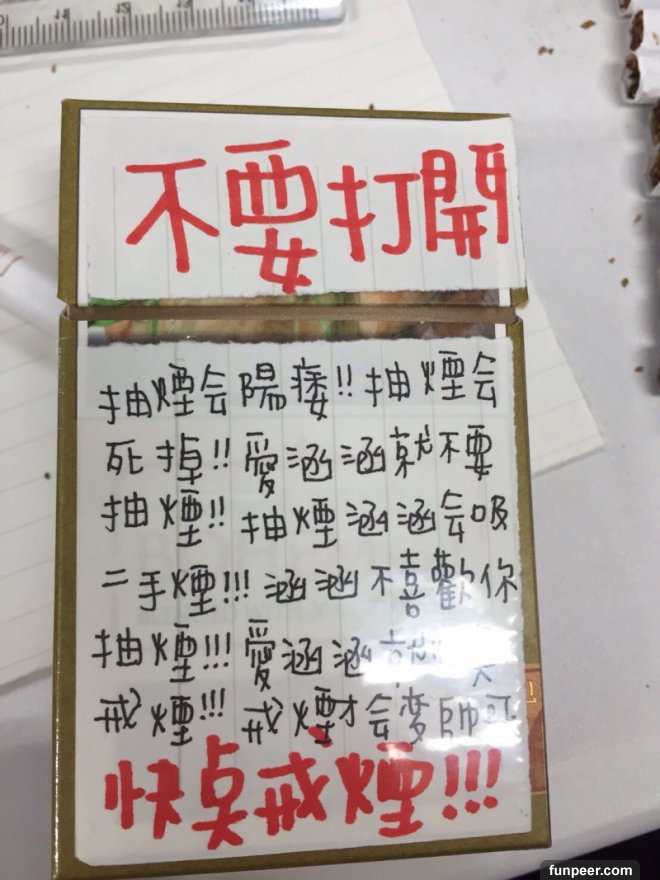 不要打開
抽煙会陽痿!!抽煙会
死掉!!愛涵涵就不要
抽煙!!抽煙涵涵会吸
二手煙!!!涵涵不喜歡你
抽煙!!!愛涵涵就
戒煙!!!戒煙才会變帥
!!!
funpeer.com